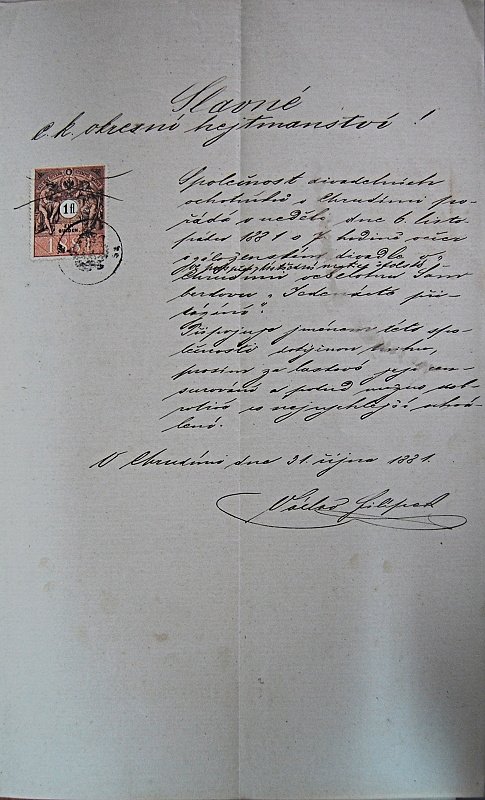 Slavné
c. k. okresní hejtmanství!
1 fl
1881
Společnost divadelních
ochotníků v Chrudimi po-
řádá v neděli dne 6. listo-
padu 1881 o 7. hodině večer
v divadle
Chrudimi veselohru
"Jedenácté při-
kázání".
Připojuje jménem této spo-
lečnosti
prosím za laskavé její cen-
surování a pokud možno dob-
rotivé co nejrychlejší schvá-
lení.
V Chrudimi dne 31. října 1881.
Václav Filípek